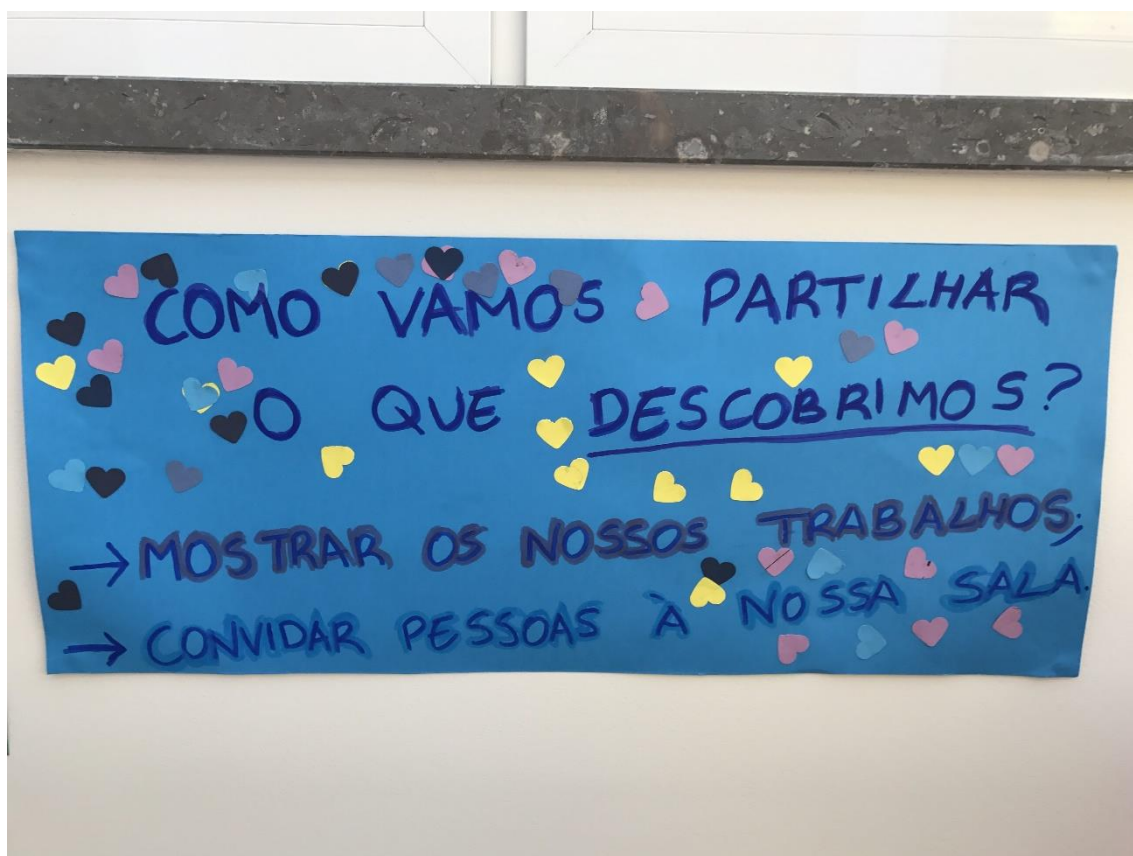 COMO VAMOS PARTILHAR
O QUE DESCOBRIMOS?
→ MOSTRAR OS NOSSOS TRABALHOS;
→ CONVIDAR PESSOAS À NOSSA SALA.